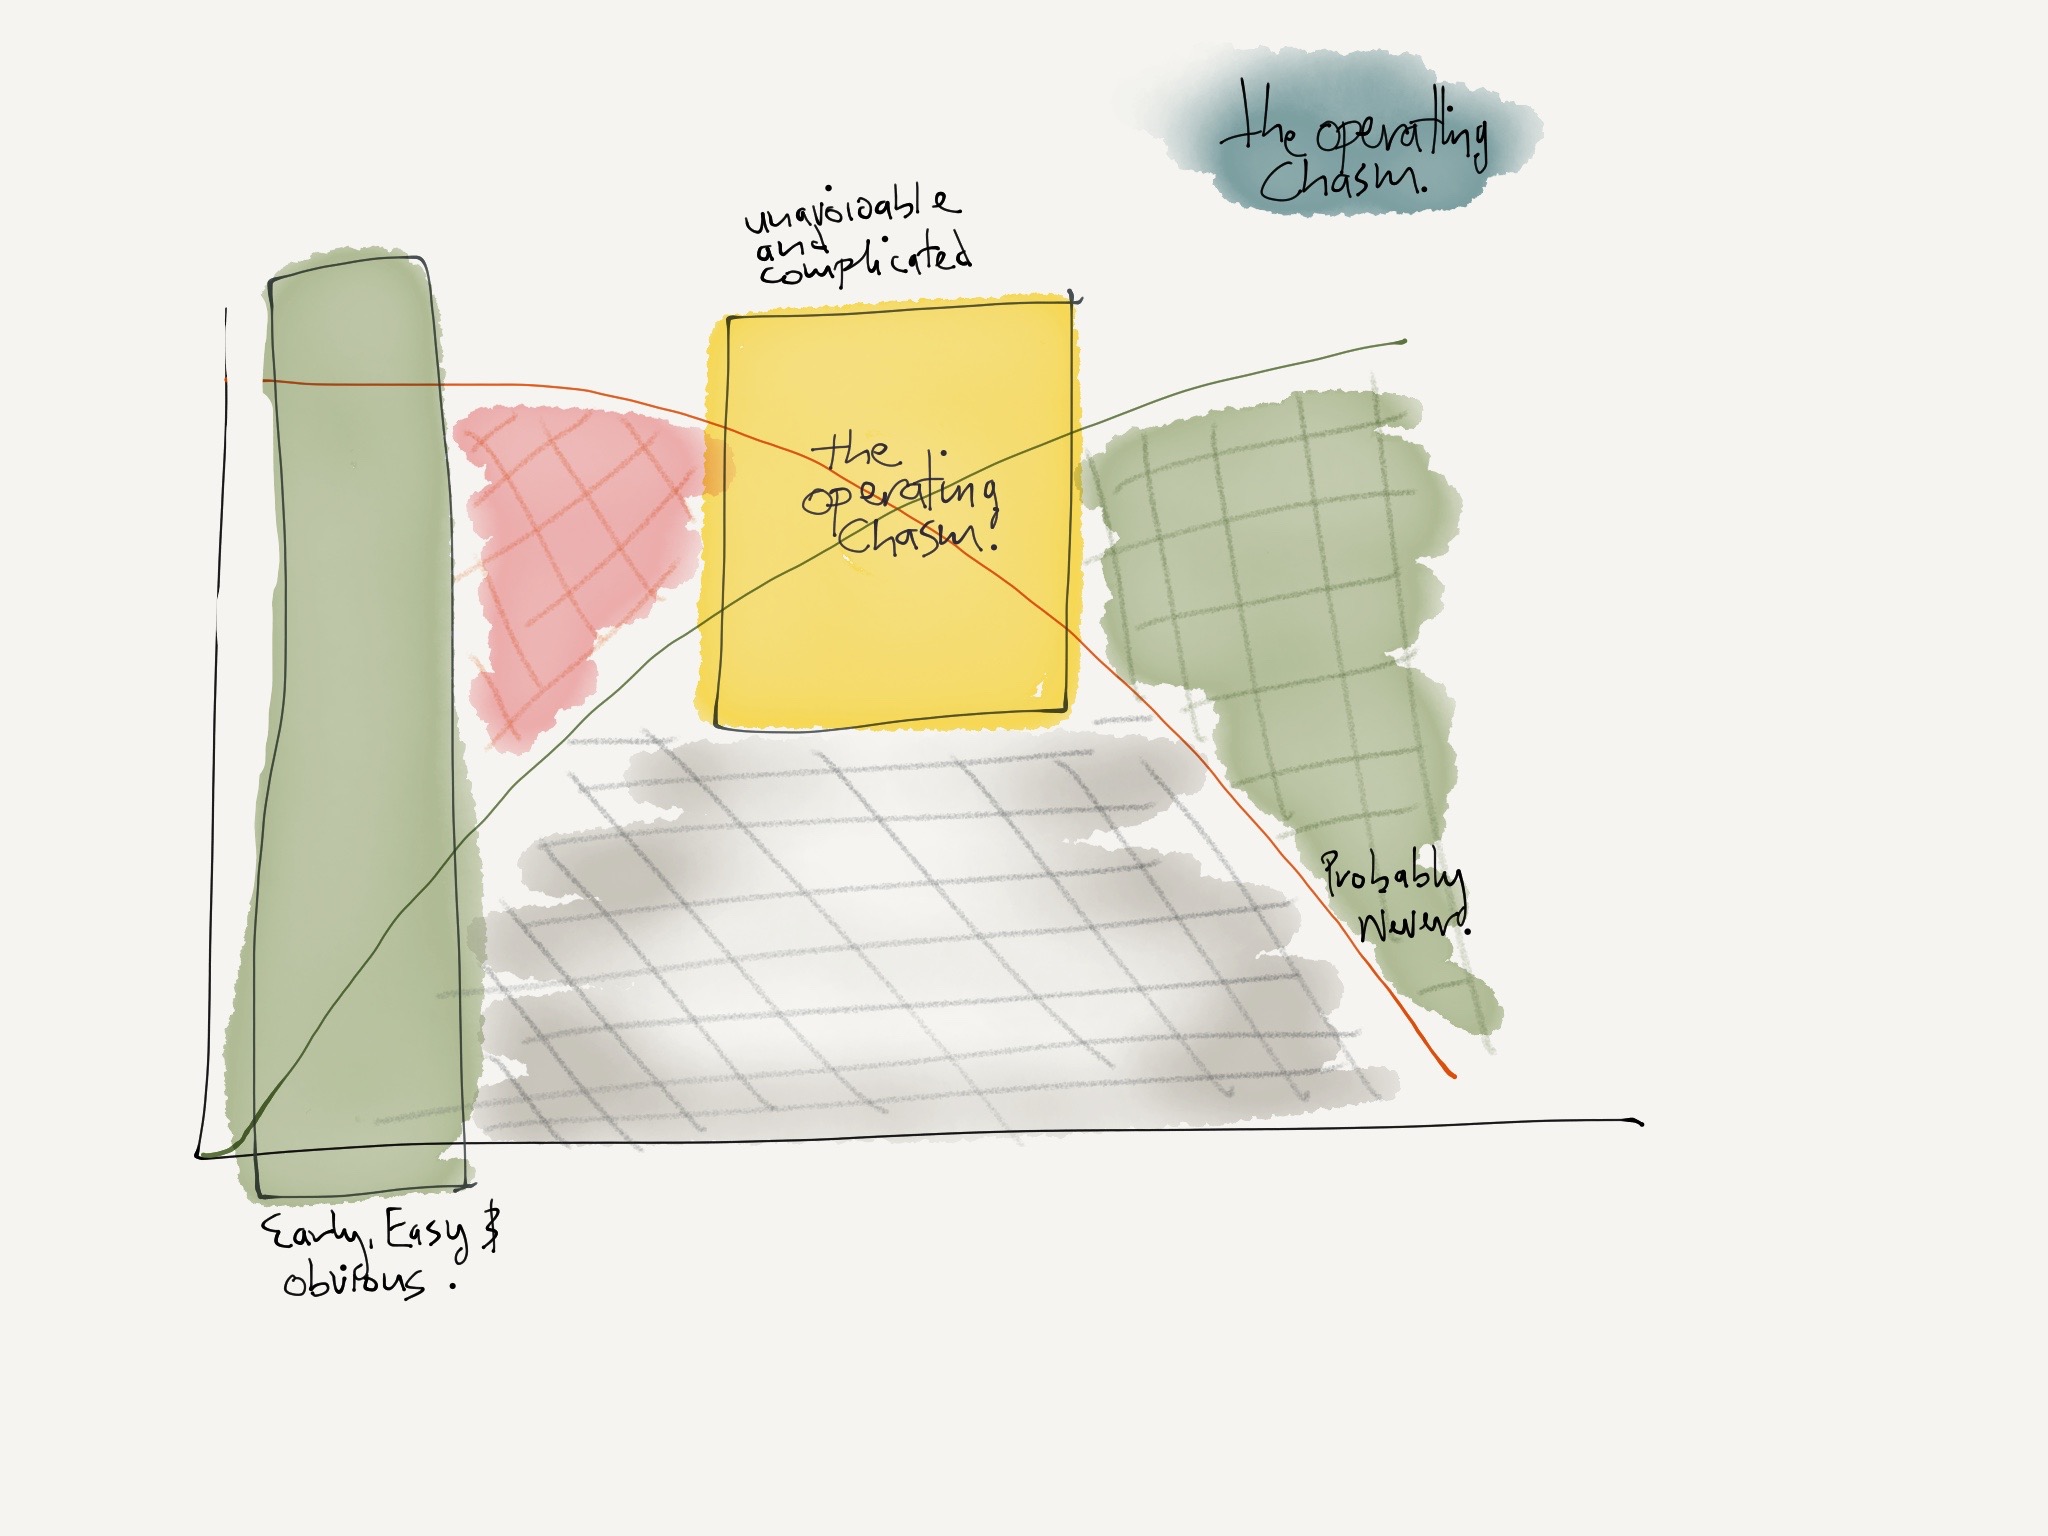 the operating
Chasm.
unavoidable
and
complicated
the
operating
Chasm.
Probably
Never.
Early, Easy &
obvious.